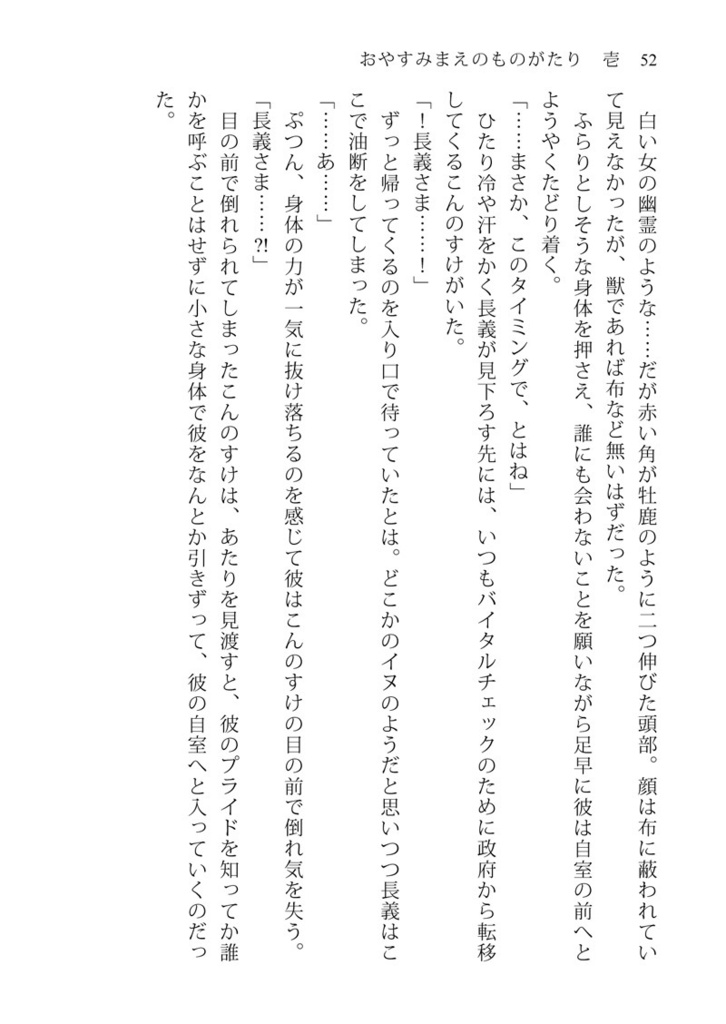 おやすみまえのものがたり　壱　52
　白い女の幽霊のような……だが赤い角が牡鹿のように二つ伸びた頭部。顔は布に蔽われてい
て見えなかったが、獣であれば布など無いはずだった。
　ふらりとしそうな身体を押さえ、誰にも会わないことを願いながら足早に彼は自室の前へと
ようやくたどり着く。
「……まさか、このタイミングで、とはね」
　ひたり冷や汗をかく長義が見下ろす先には、いつもバイタルチェックのために政府から転移
してくるこんのすけがいた。
「！長義さま……！」
　ずっと帰ってくるのを入り口で待っていたとは。どこかのイヌのようだと思いつつ長義はこ
こで油断をしてしまった。
「……あ……」
　ぷつん、身体の力が一気に抜け落ちるのを感じて彼はこんのすけの目の前で倒れ気を失う。
「長義さま……?!」
　目の前で倒れられてしまったこんのすけは、あたりを見渡すと、彼のプライドを知ってか誰
かを呼ぶことはせずに小さな身体で彼をなんとか引きずって、彼の自室へと入っていくのだっ
た。